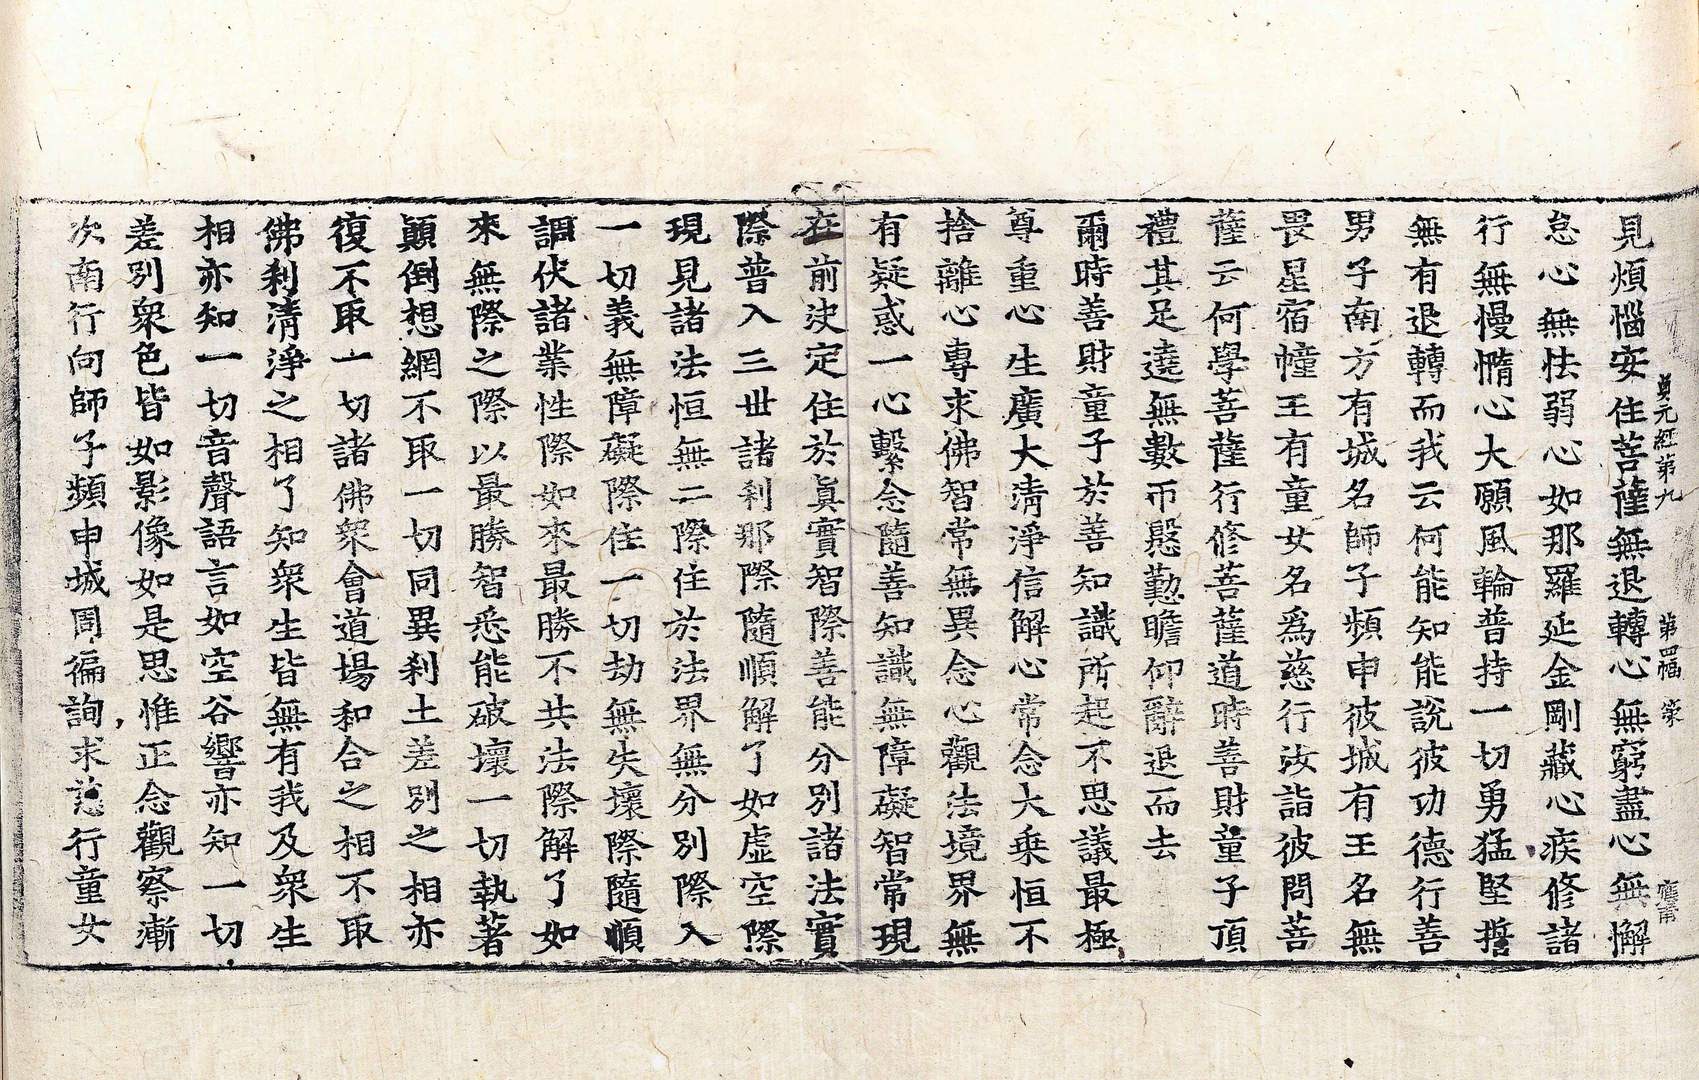 貞元經第九　第四幅　家
見煩惱安住菩薩無退轉心無窮盡心無懈
怠心無怯弱心如那羅延金剛藏心疾修諸
行無慢惰心大願風輪普持一切勇猛堅誓
無有退轉而我云何能知能說彼功德行善
男子南方有城名師子頻申彼城有王名無
畏星宿幢王有童女名爲慈行汝詣彼問菩
薩云何學菩薩行修菩薩道時善財童子頂
禮其足遶無數帀慇懃瞻仰辭退而去
爾時善財童子於善知識所起不思議最極
尊重心生廣大淸淨信解心常念大乗恒不
捨離心專求佛智常無異念心觀法境界無
有疑惑一心繫念隨善知識無障礙智常現
在前決定住於眞實智際善能分別諸法實
際普入三世諸刹那際隨順解了如虛空際
現見諸法恒無二際住於法界無分別際入
一切義無障礙際住一切劫無失壞際隨順
調伏諸業性際如來最勝不共法際解了如
來無際之際以最勝智悉能破壞一切執著
顚倒想網不取一切同異刹土差別之相亦
復不取一切諸佛衆會道場和合之相不取
佛刹淸淨之相了知衆生皆無有我及衆生
相亦知一切音聲語言如空谷響亦知一切
差別衆色皆如影像如是思惟正念觀察漸
次南行向師子頻申城周徧詢求慈行童女